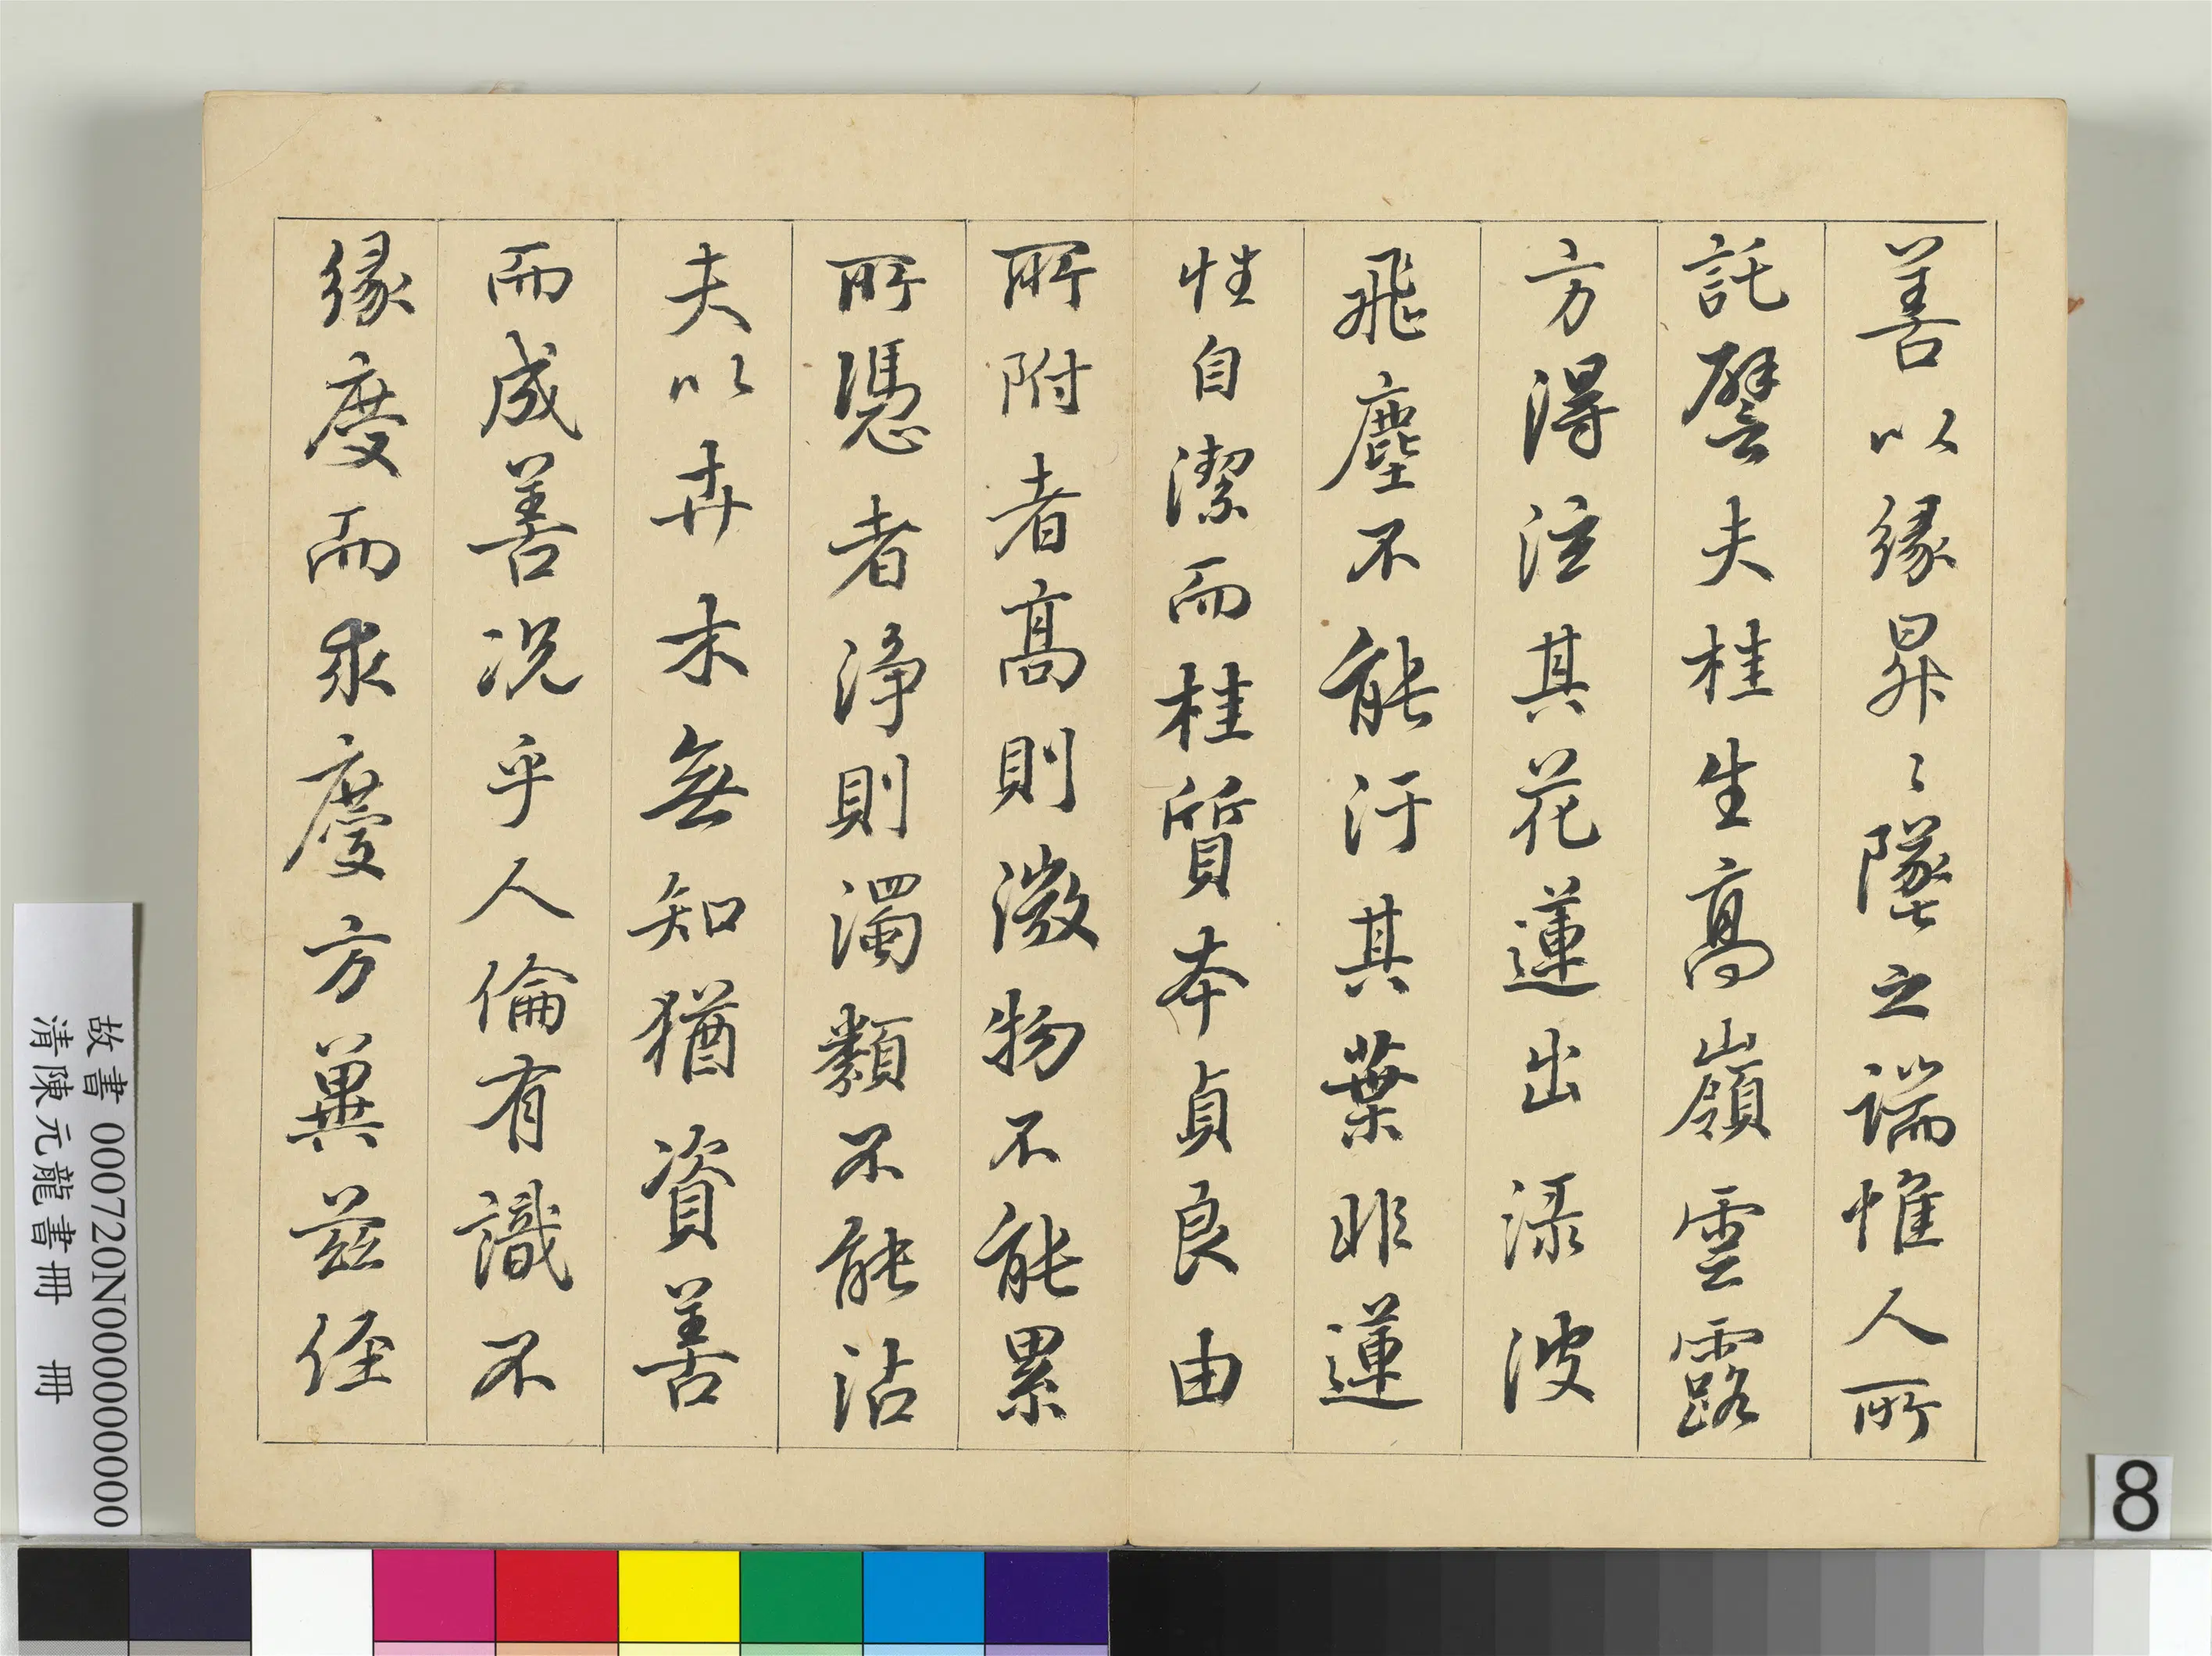 善以緣昇〻墜之端惟人所
託譬夫桂生高嶺雲露
方得泫其花蓮出淥波
飛塵不能汙其葉非蓮
性自潔而桂質本貞良由
所附者高則微物不能累
所憑者淨則濁類不能沾
夫以卉木無知猶資善
而成善況乎人倫有識不
緣慶而求慶方兾茲經
故書000720N000000000
清陳元龍書冊 冊
8